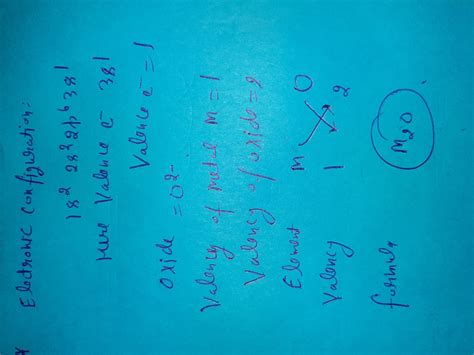 Electronic configuration:
1s² 2s² 2p⁶ 3s¹
Here Valence e⁻ 3s¹
Valence e⁻ = 1
oxide = O²⁻
Valency of metal M = 1
Valency of oxide = 2
Element M O
Valency 1 2
formula M₂O